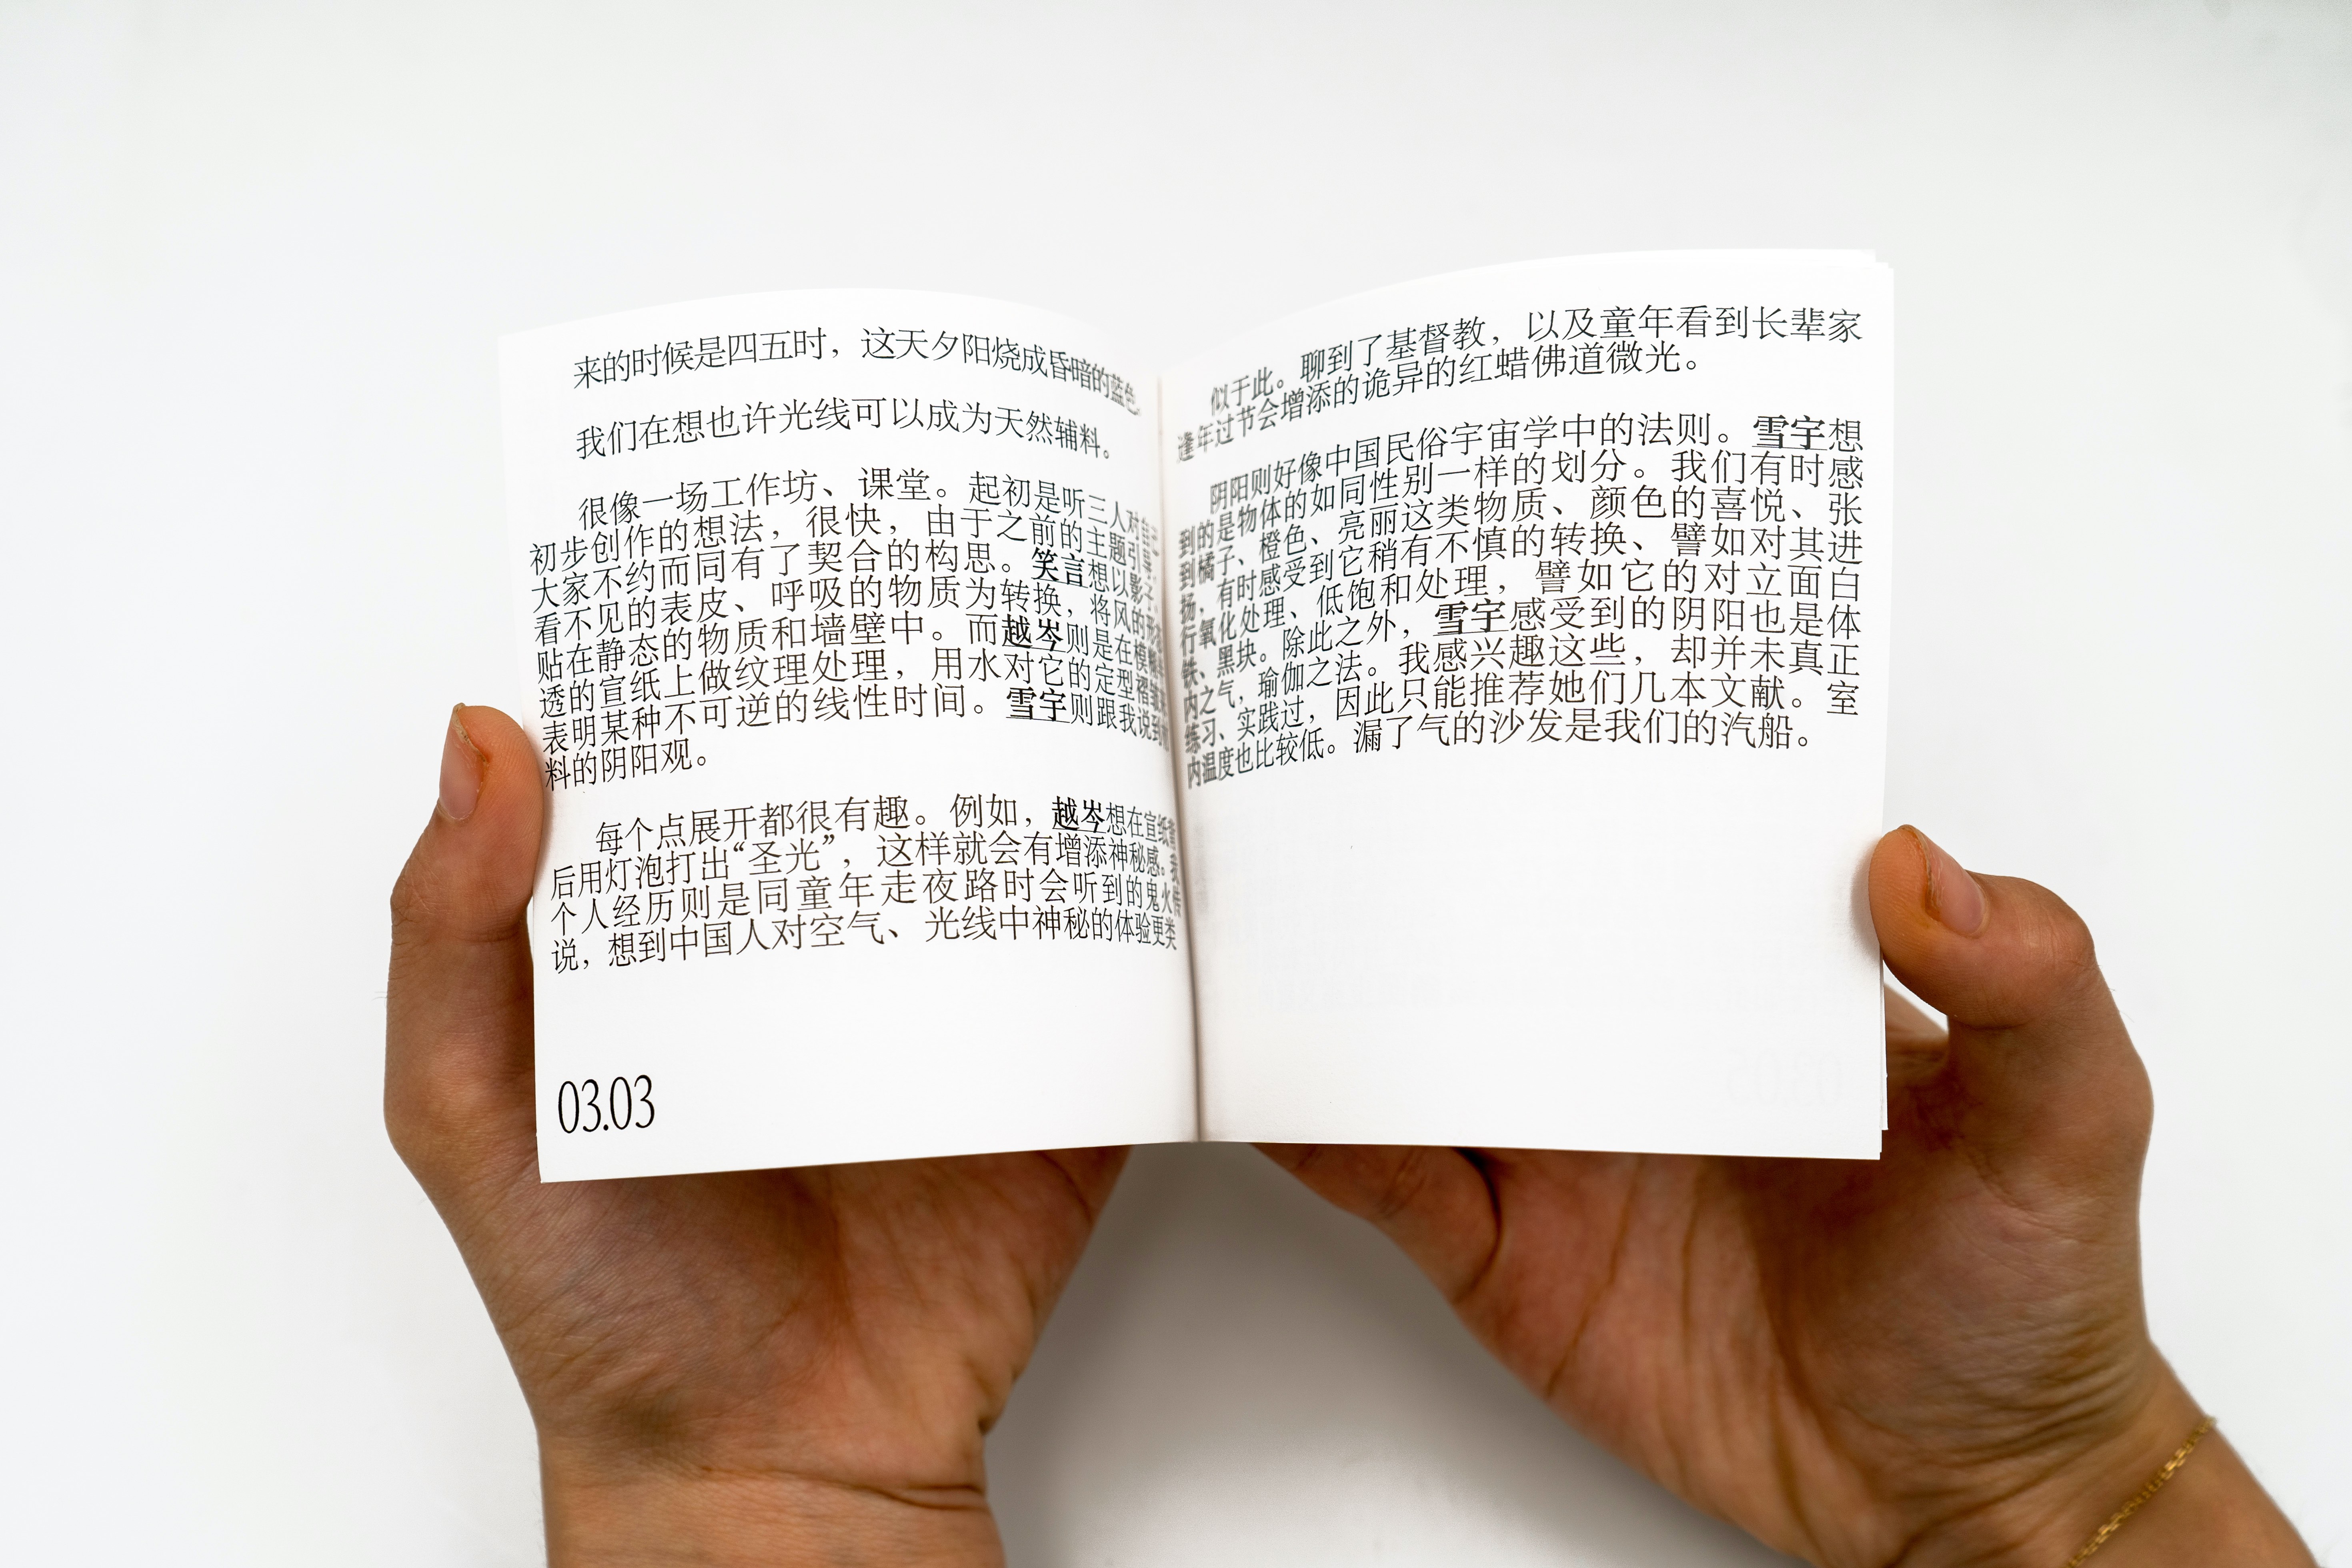 来的时候是四五时，这天夕阳烧成昏暗的蓝色
我们在想也许光线可以成为天然辅料。
很像一场工作坊、课堂。起初是听三人对自己
初步创作的想法，很快，由于之前的主题引导，
大家不约而同有了契合的构思。笑言想以影子、
看不见的表皮、呼吸的物质为转换，将风的
贴在静态的物质和墙壁中。而越岑则是在模糊
透的宣纸上做纹理处理，用水对它的定型褶皱
表明某种不可逆的线性时间。雪宇则跟我说到
料的阴阳观。
每个点展开都很有趣。例如，越岑想在宣纸背
后用灯泡打出“圣光”，这样就会有增添神秘感。我
个人经历则是同童年走夜路时会听到的鬼火传
说，想到中国人对空气、光线中神秘的体验更类
03.03
似于此。聊到了基督教，以及童年看到长辈家
逢年过节会增添的诡异的红蜡佛道微光。
阴阳则好像中国民俗宇宙学中的法则。雪宇想
到的是物体的如同性别一样的划分。我们有时感
到橘子、橙色、亮丽这类物质、颜色的喜悦、张
扬，有时感受到它稍有不慎的转换、譬如对其进
行氧化处理、低饱和处理，譬如它的对立面白
铁、黑块。除此之外，雪宇感受到的阴阳也是体
内之气，瑜伽之法。我感兴趣这些，却并未真正
练习、实践过，因此只能推荐她们几本文献。室
内温度也比较低。漏了气的沙发是我们的汽船。